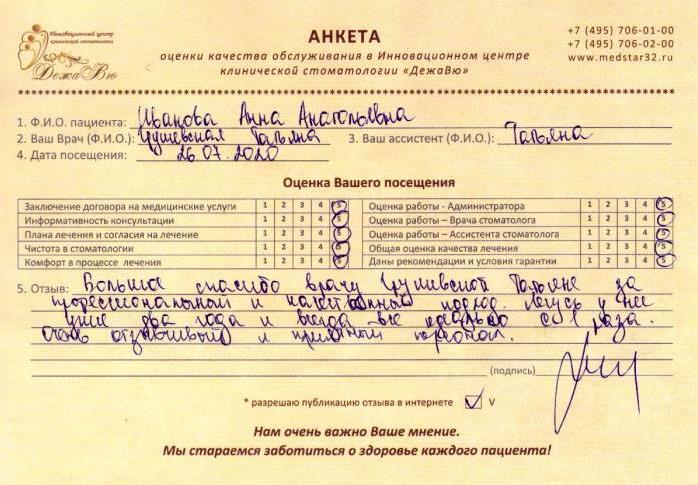 Инновационный центр
клинической стоматологии
ДежаВю
АНКЕТА
оценки качества обслуживания в Инновационном центре
клинической стоматологии «ДежаВю»
+7 (495) 706-01-00
+7 (495) 706-02-00
www.medstar32.ru
1. Ф.И.О. пациента: Иванова Анна Анатольевна
2. Ваш Врач (Ф.И.О.): Грушевская Татьяна 3. Ваш ассистент (Ф.И.О.): Татьяна
4. Дата посещения: 26.07.2020
Оценка Вашего посещения
Заключение договора на медицинские услуги 1 2 3 4 5
Информативность консультации 1 2 3 4 5
Плана лечения и согласия на лечение 1 2 3 4 5
Чистота в стоматологии 1 2 3 4 5
Комфорт в процессе лечения 1 2 3 4 5
Оценка работы - Администратора 1 2 3 4 5
Оценка работы – Врача стоматолога 1 2 3 4 5
Оценка работы – Ассистента стоматолога 1 2 3 4 5
Общая оценка качества лечения 1 2 3 4 5
Даны рекомендации и условия гарантии 1 2 3 4 5
5. Отзыв: Большое спасибо врачу Грушевской Татьяне за
профессиональный и качественный подход. Лечусь у нее
уже два года и всегда все идеально с 1 раза.
Очень отзывчивый и приятный персонал.
(подпись)
* разрешаю публикацию отзыва в интернете V
Нам очень важно Ваше мнение.
Мы стараемся заботиться о здоровье каждого пациента!